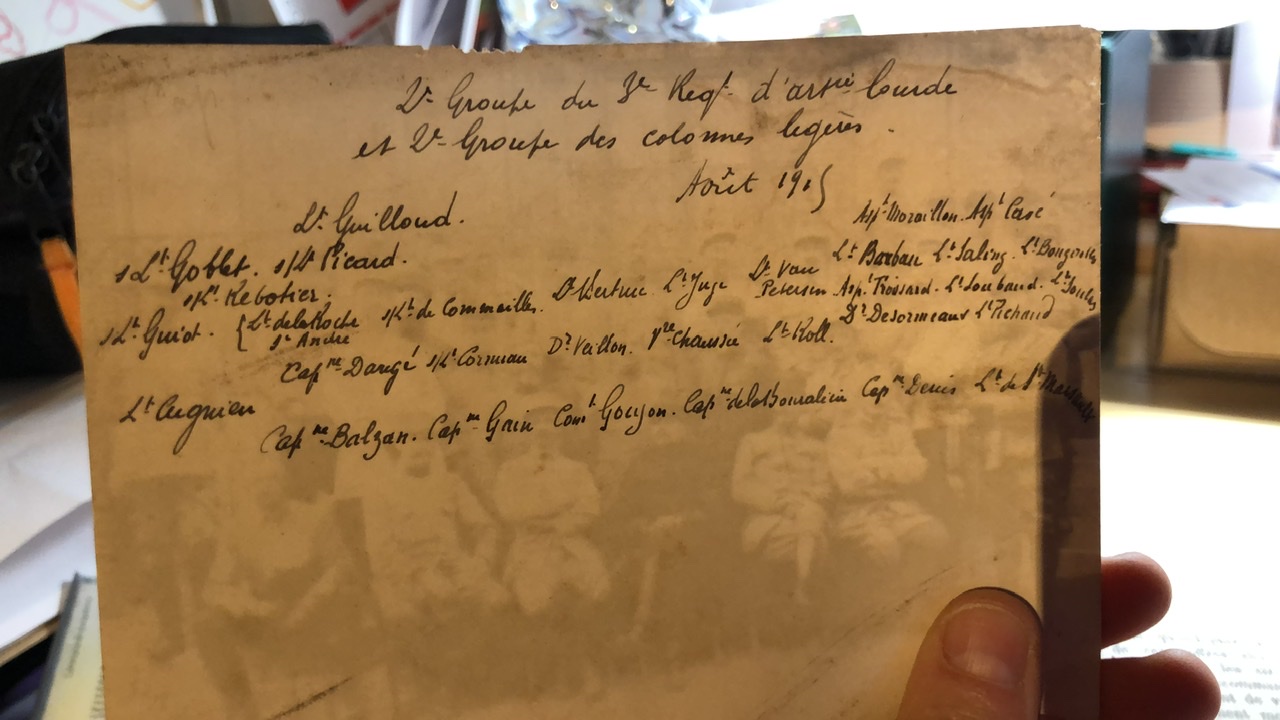 2e Groupe du 3me Regt d'artrie lourde
et 2e Groupe des colonnes légères.
Août 1915
Lt Guilloud.
Aspt Moraillon. Aspt Casé
s/Lt Goblet. s/Lt Picard.
Lt Barbau Lt Saling. Lt
s/Lt Rebotier.
s/Lt de Commailles. Dr Lt Juge Dr Van Petersen Aspt Froissard. Lt Loubaud. Lt
s/Lt Guiot. { Lt de la Roche
st André
Dr Desormeaux Lt Richaud
Capne Dangé s/Lt Cormeau Dr Veillon. Vre Chaussié Lt Koll.
Lt Cugnieu
Capne Balzan. Capne Grin Comt Goujon. Capne de la Bouralière Capne Denis Lt de